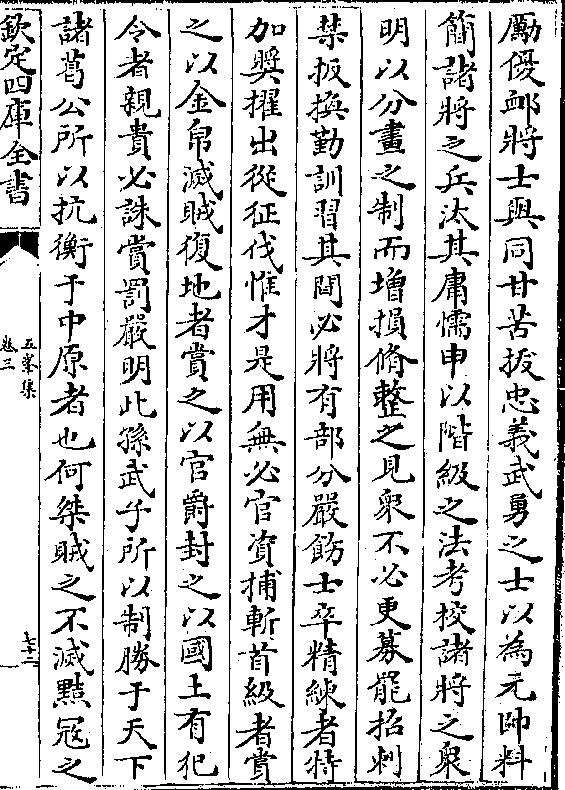 勵優䘏將士與同甘苦拔忠義武勇之士以為元帥料
簡諸將之兵汰其庸懦申以階級之法考校諸將之衆
明以分畫之制而增損脩整之見衆不必更募罷招刺
禁扳換勤訓習其間必將有部分嚴飭士卒精練者特
加奬擢出從征伐惟才是用無必官資捕斬首級者賞
之以金帛滅賊復地者賞之以官爵封之以國土有犯
令者親貴必誅賞罰嚴明此孫武子所以制勝于天下
諸葛公所以抗衡于中原者也何桀賊之不滅黠冦之
欽定四庫全書
五峯集
卷三
七十二